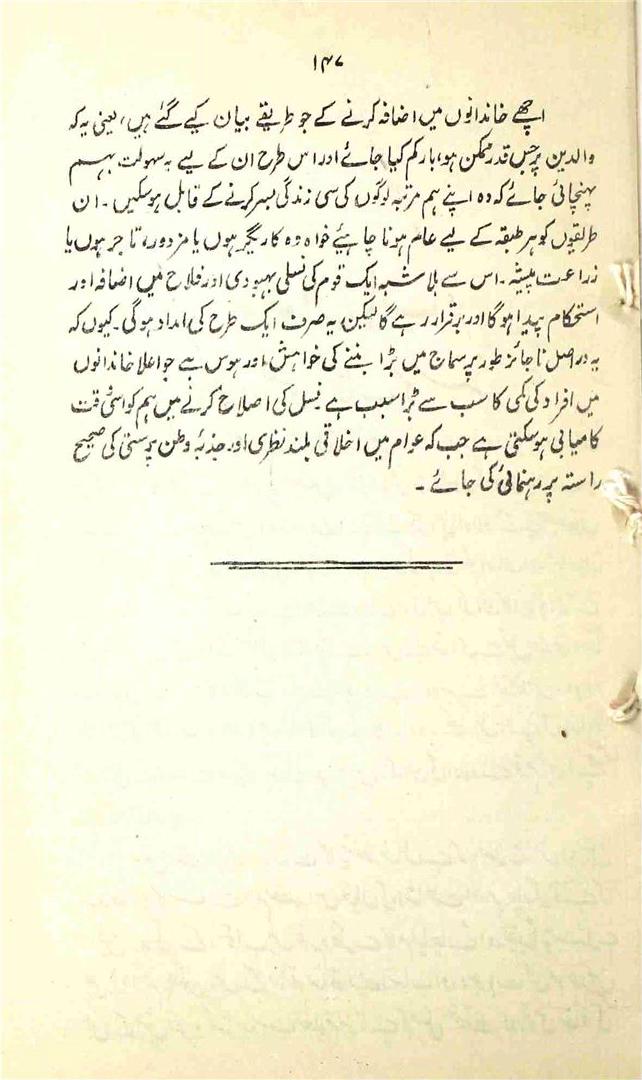 ۱۴۷
اچھے خاندانوں میں اضافہ کرنے کے جو طریقے بیان کیے گئے ہیں، یعنی یہ کہ
والدین پر جس قدر ممکن ہو، بار کم کیا جائے اور اس طرح ان کے لیے یہ سہولت بہم
پہنچائی جائے کہ وہ اپنے ہم مرتبہ لوگوں کی سی زندگی بسر کرنے کے قابل ہو سکیں۔ ان
طریقوں کو ہر طبقہ کے لیے عام ہونا چاہیے خواہ وہ کاریگر ہوں یا مزدور، تاجر ہوں یا
زراعت پیشہ۔ اس سے بلا شبہ ایک قوم کی نسلی بہبودی اور فلاح میں اضافہ اور
استحکام پیدا ہوگا اور برقرار رہے گا لیکن یہ صرف ایک طرح کی امداد ہوگی۔ کیوں کہ
یہ دراصل ناجائز طور پر سماج میں بڑا بننے کی خواہش اور ہوس ہے جو اعلا خاندانوں
میں افراد کی کمی کا سب سے بڑا سبب ہے نسل کی اصلاح کرنے میں ہم کو اسی وقت
کامیابی ہو سکتی ہے جب کہ عوام میں اخلاقی بلند نظری اور جذبۂ وطن پرستی کی صحیح
راستہ پر رہنمائی کی جائے۔